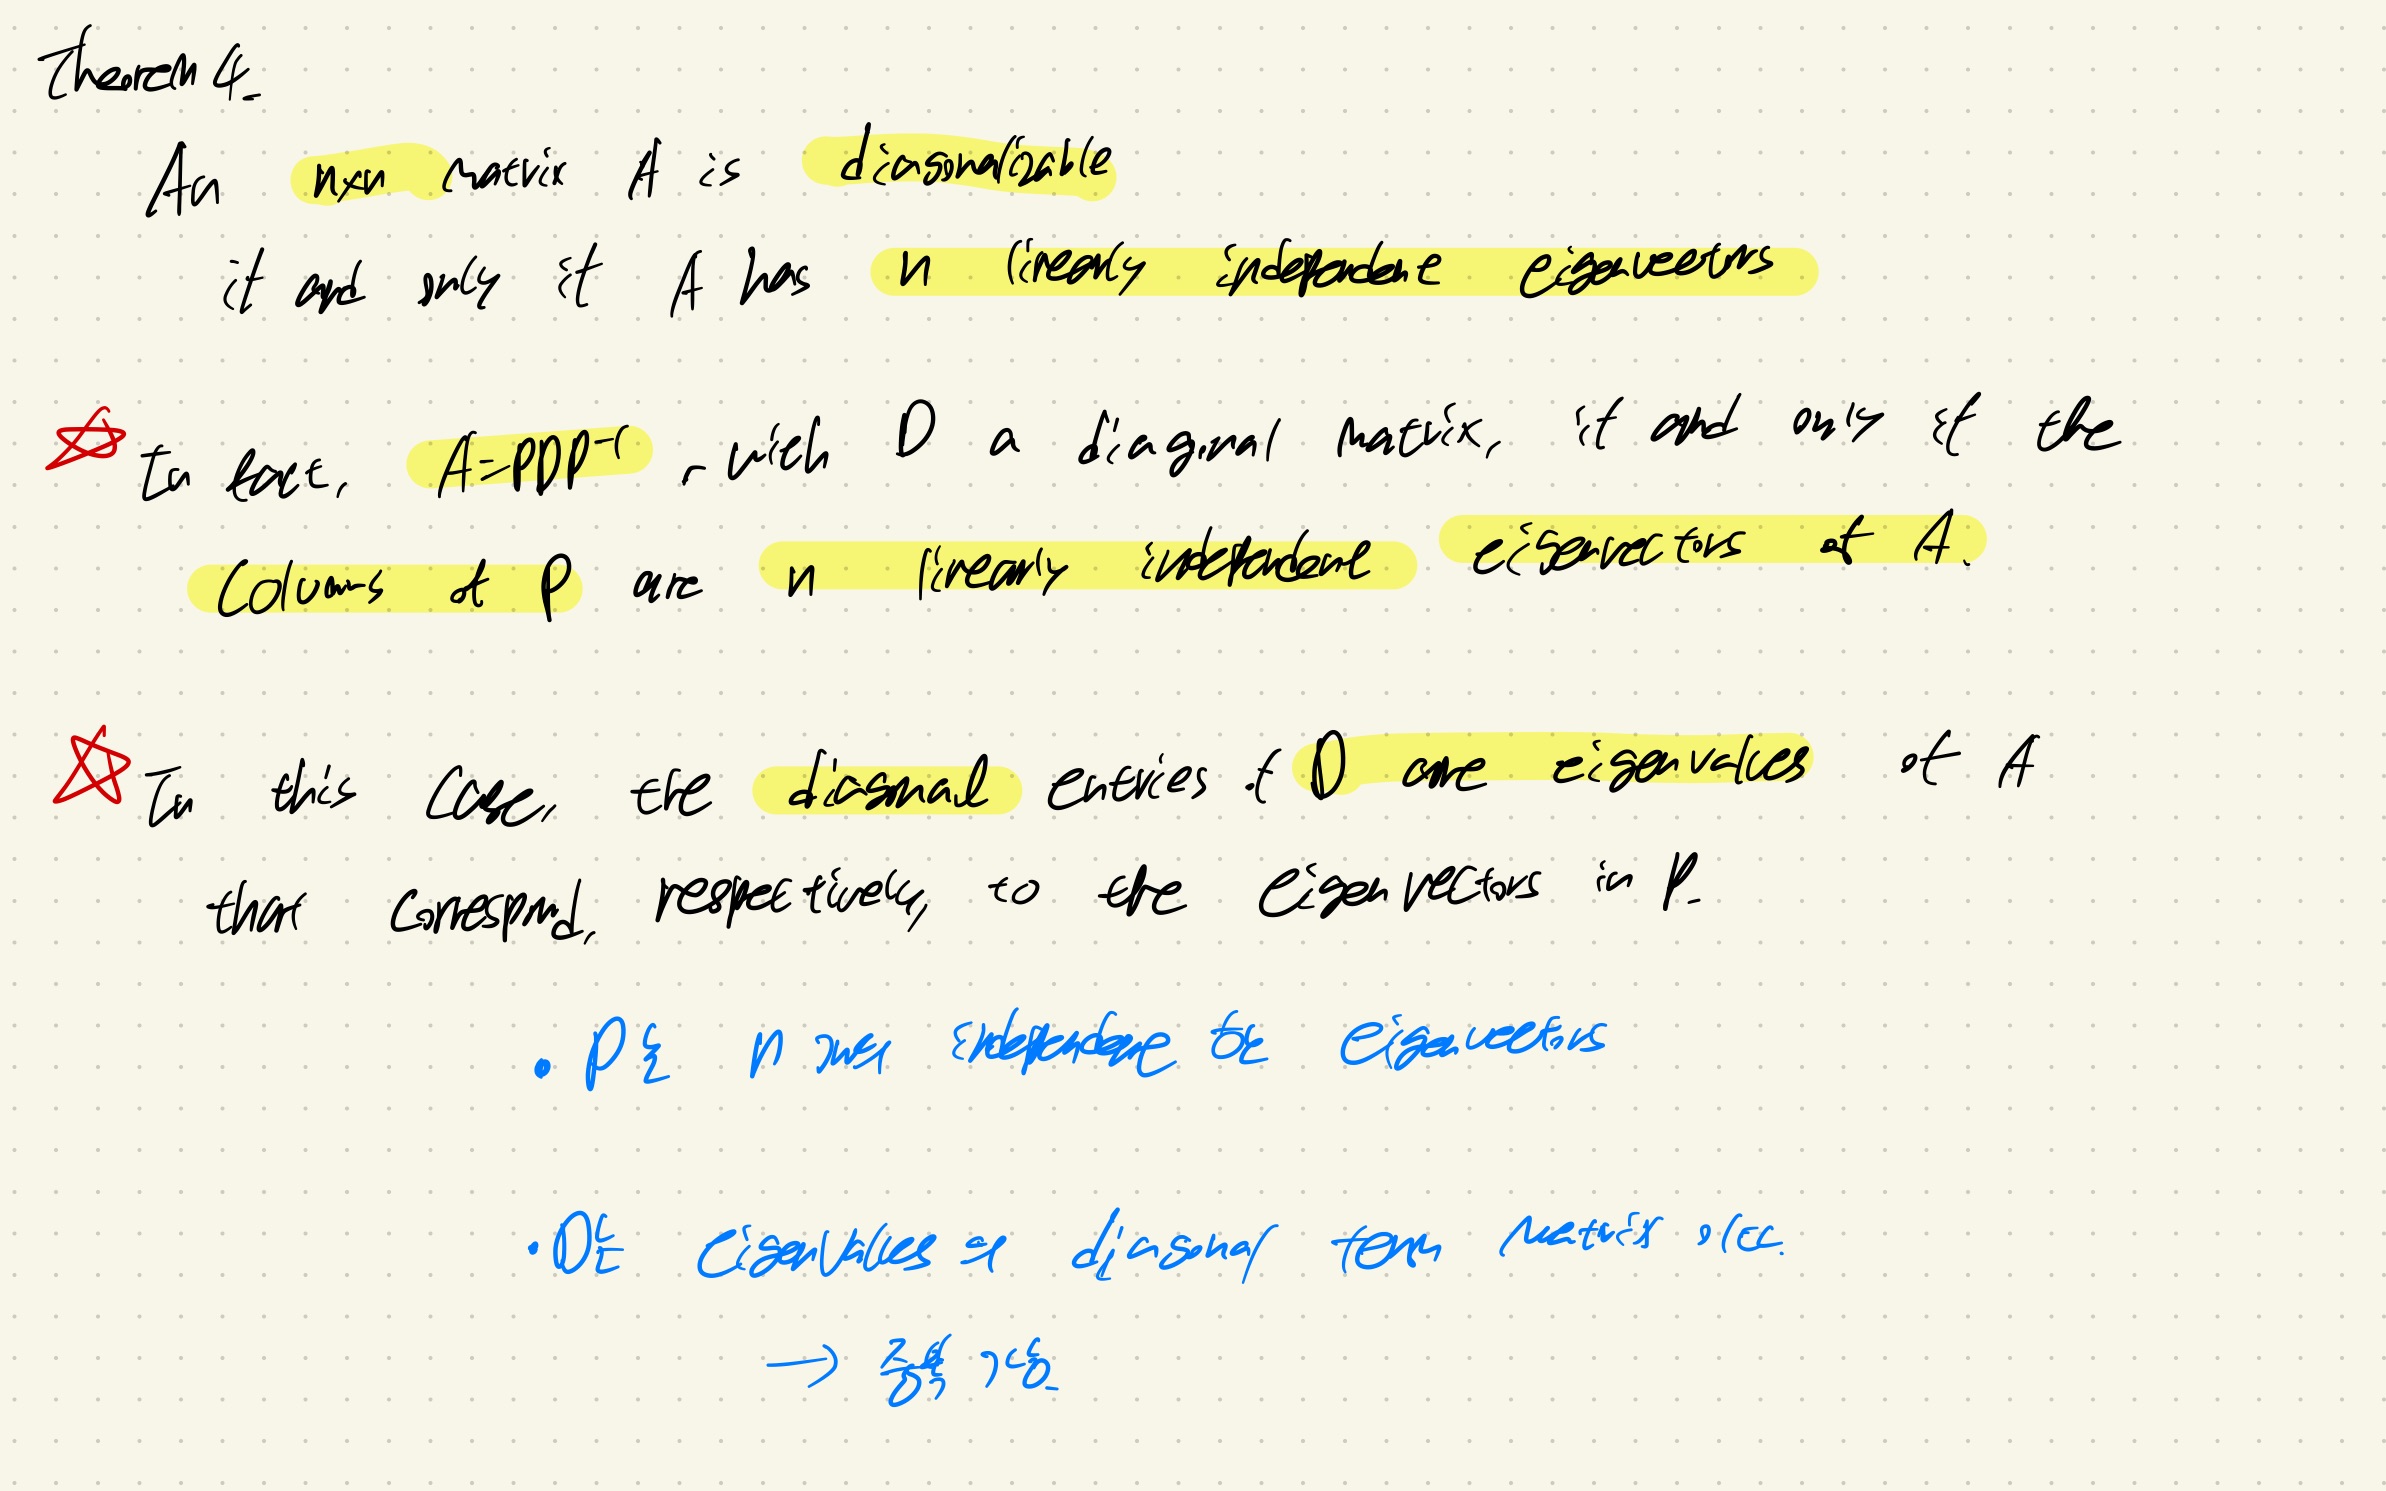 Theorem 4.
An n×n matrix A is diagonalizable
if and only if A has n linearly independent eigenvectors
In fact, A=PDP⁻¹, with D a diagonal matrix, if and only if the
Columns of P are n linearly independent eigenvectors of A.
In this Case, the diagonal entries of D are eigenvalues of A
that correspond, respectively, to the eigenvectors in P.
• P는 n개의 independent한 eigenvectors
• D는 eigenvalues의 diagonal term matrix 이다.
→ 중복 가능.